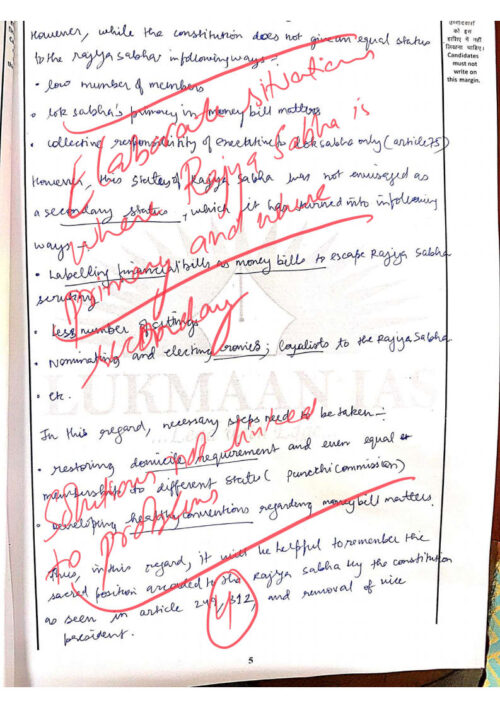 उम्मीदवारों
को इस
हाशिए में नहीं
लिखना चाहिए।
Candidates
must not
write on
this margin.
However, while the constitution does not give an equal status
to the rajya sabha in following ways :-
• low number of members
• lok sabha's primacy in money bill matters
• collective responsibility of executive to lok sabha only (article 75)
However, this status of Rajya Sabha was not envisaged as
a secondary status, which it has turned into in following
ways -
• Labelling financial bills as money bills to escape Rajya Sabha
scrutiny
• Less number of sittings
• Nominating and electing cronies; loyalists to the Rajya Sabha
• etc.
In this regard, necessary steps need to be taken :-
• restoring domicile requirement and even equal
membership to different states (Punchhi Commission)
• Developing healthy conventions regarding money bill matters.
Thus, in this regard, it will be helpful to remember the
sacred position accorded to the Rajya Sabha by the constitution
as seen in article 249, 312, and removal of vice
president.
Elaborate situations
where Rajya Sabha is
primary and where
secondary
Solutions not linked
to problems
4
LUKMAAN IAS
5